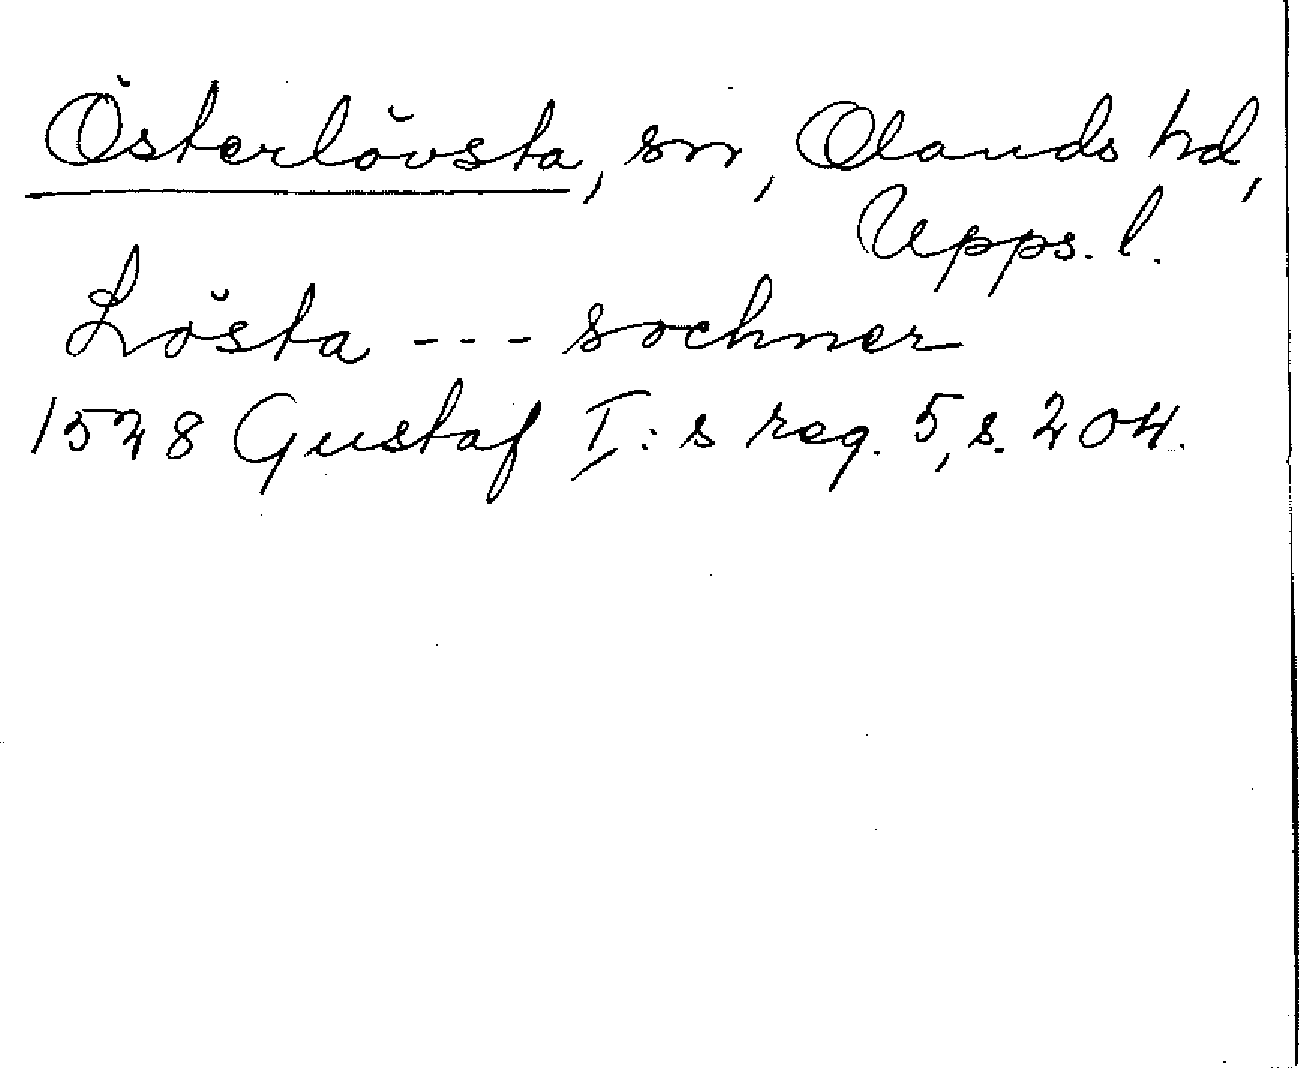 Österlövsta, sn, Olands hd,
Upps. l.
Lösta --- sochner
1528 Gustaf I:s reg. 5, s. 204.